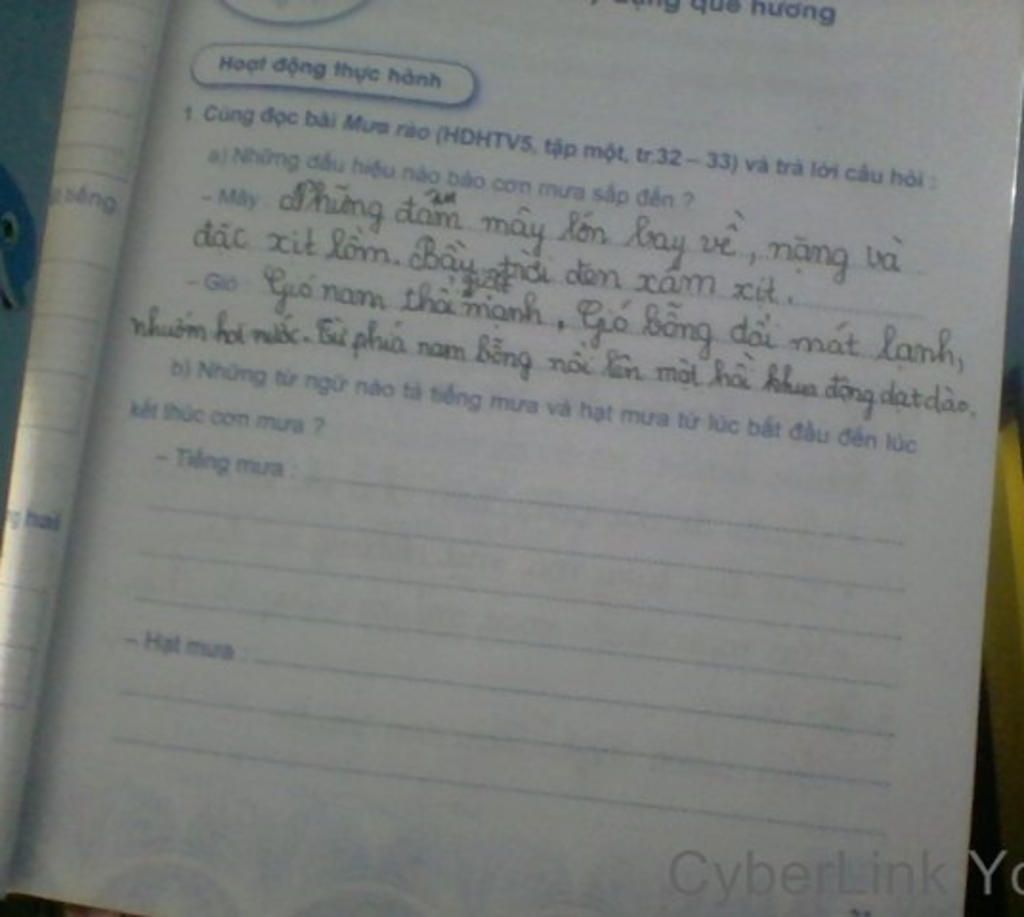 quê hương
Hoạt động thực hành
1. Cùng đọc bài Mưa rào (HDHTV5, tập một, tr.32 – 33) và trả lời câu hỏi :
a) Những dấu hiệu nào báo cơn mưa sắp đến ?
- Mây Những đám mây lớn bay về, nặng và
đặc xịt lồm. Bầu trời đen xám xịt.
- Gió Gió nam thổi mạnh, Gió bỗng đổi mát lạnh,
nhuốm hơi nước. Từ phía nam bỗng nổi lên một hồi khua động dạt dào.
b) Những từ ngữ nào tả tiếng mưa và hạt mưa từ lúc bắt đầu đến lúc
kết thúc cơn mưa ?
– Tiếng mưa :
– Hạt mưa :
hai
CyberLink Yo